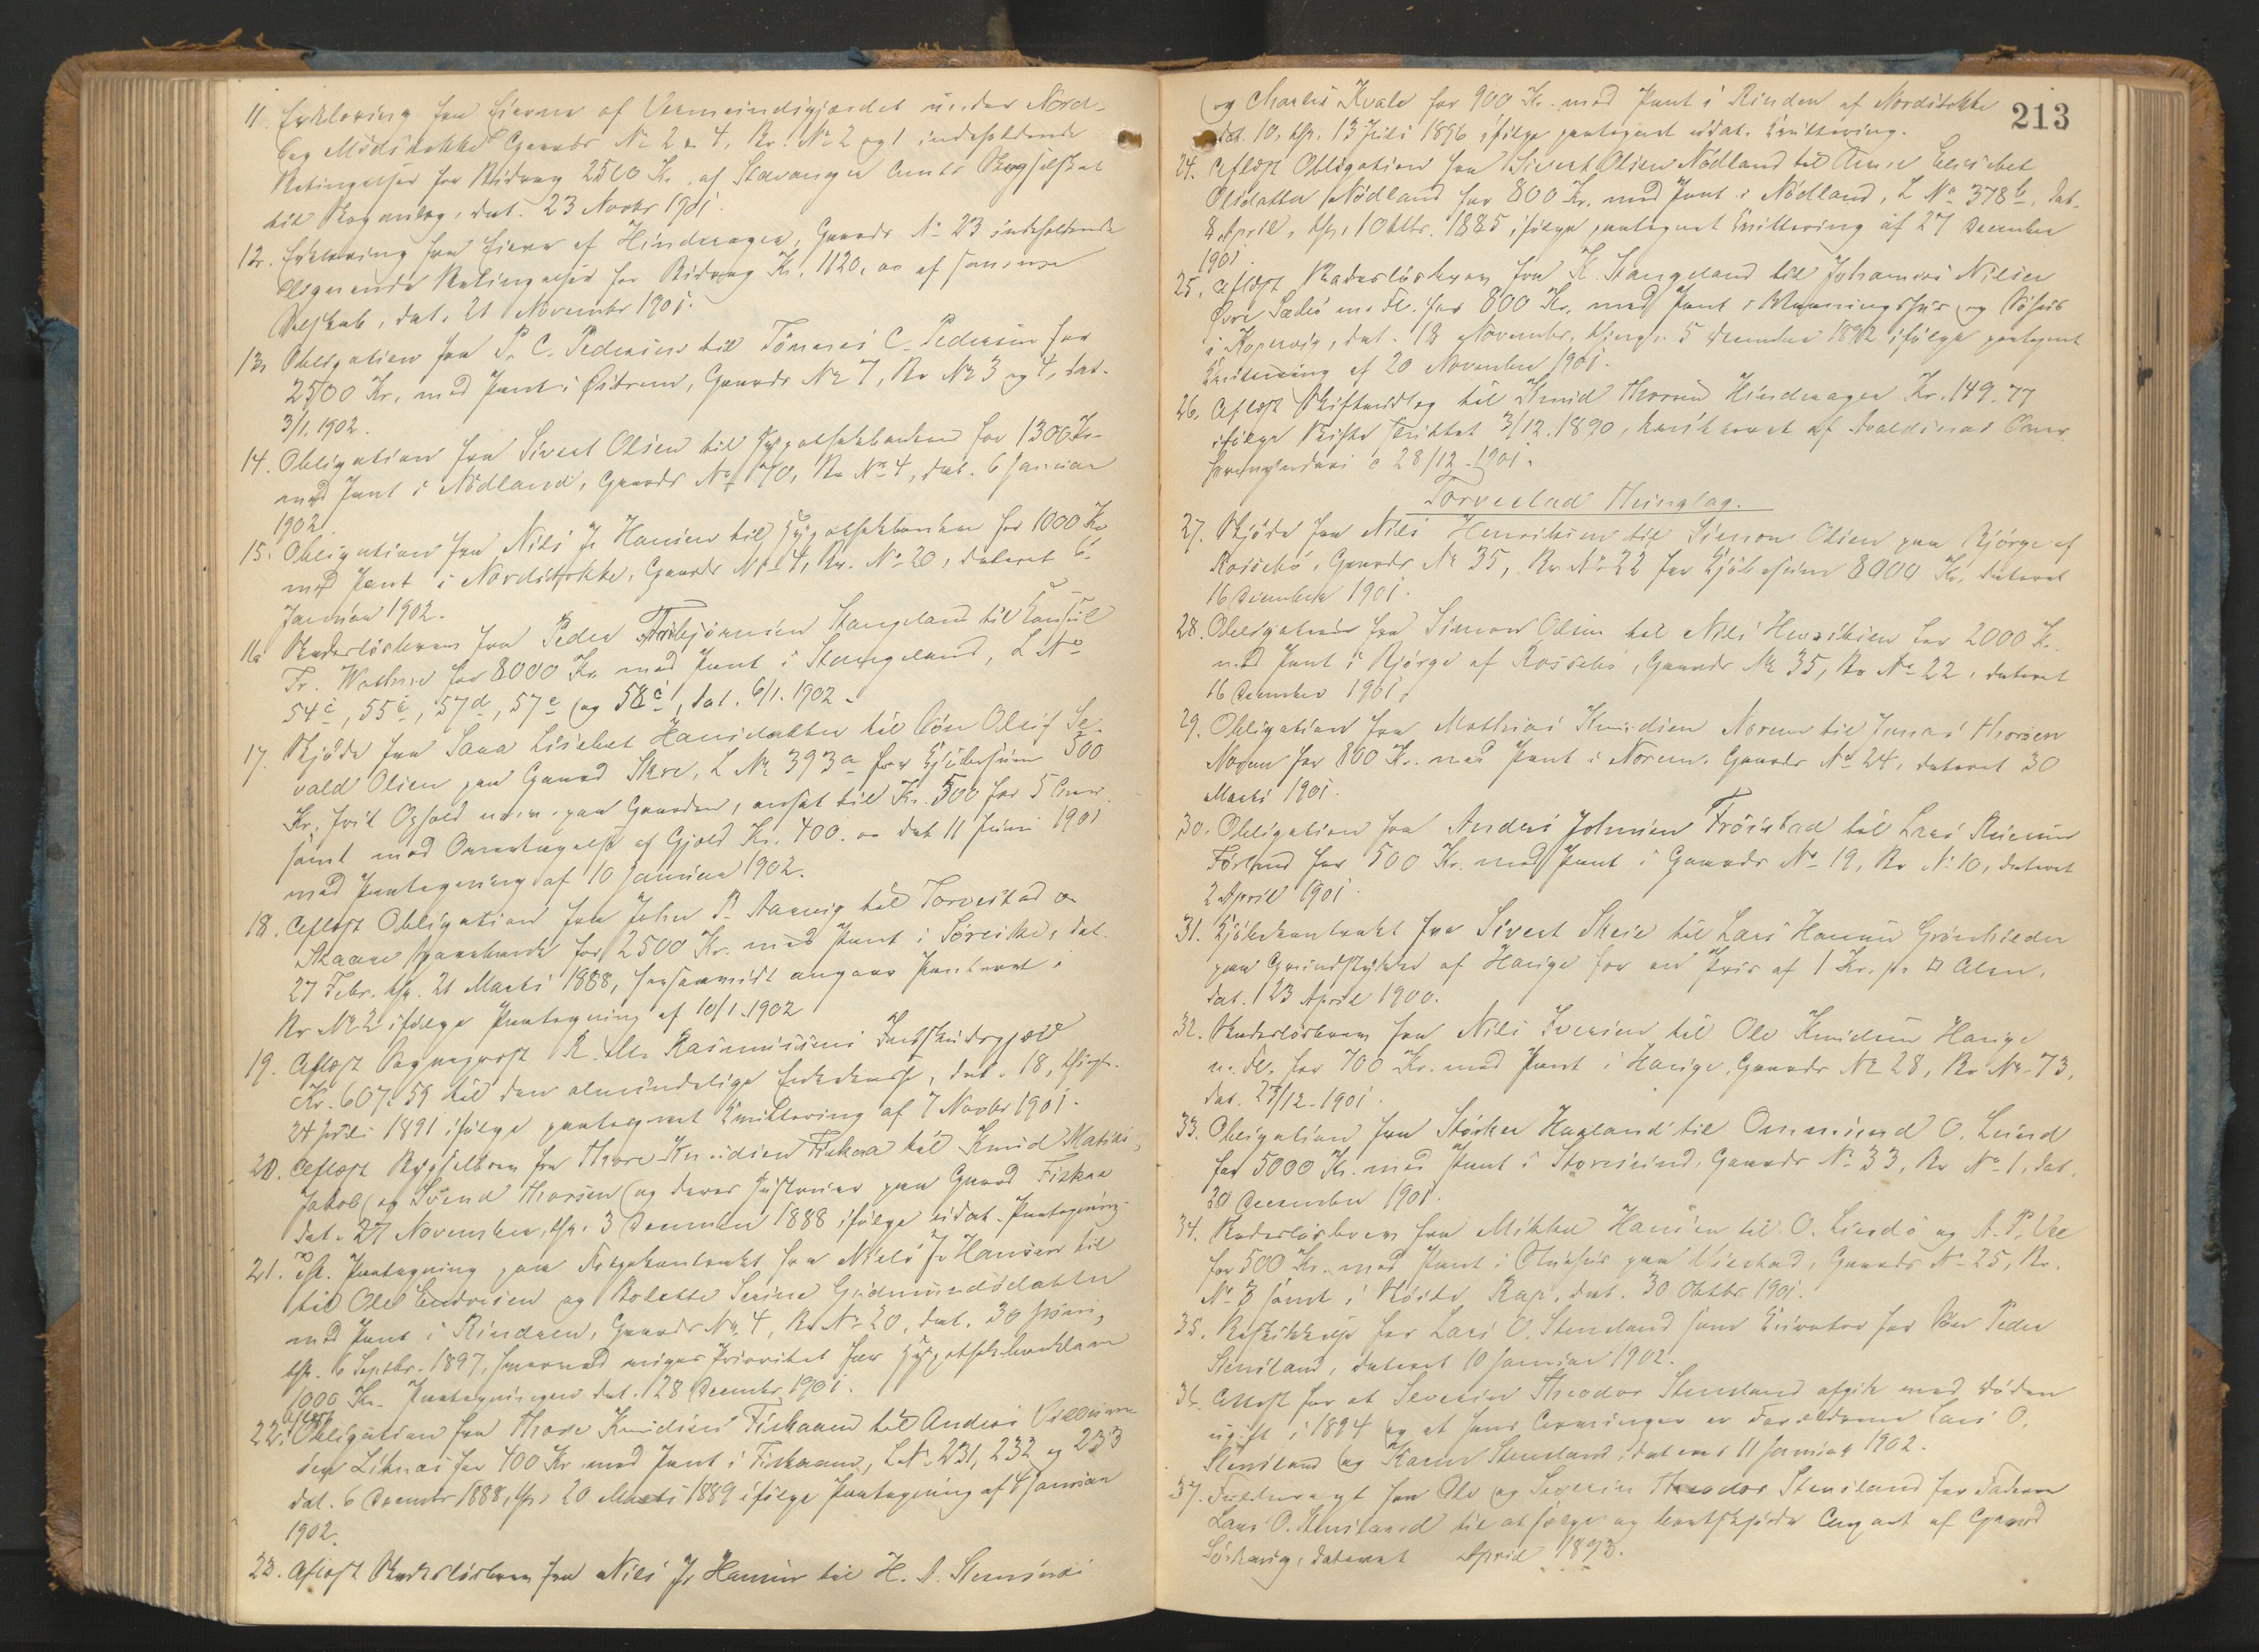 11. Erklæring fra Eierne af Vermeindsgjærdet under Nord-
og Midtstokke Gaards No 2 & 4, Br. No 2 og 1 indeholdende
Betingelser for Bidrag 2500 Kr. af Stavanger Amts Skogselskab
til Skoganlæg, dat. 23 Novbr 1901.
12. Erklæring fra Eierne af Hindraager, Gaards No 23 indeholdende
lignende Betingelser for Bidrag Kr. 1120,00 af samme
Selskab, dat. 21 November 1901.
13. Obligation fra P. C. Pedersen til Tønnes C. Pedersen for
2500 Kr. med Pant i Østrem, Gaards No 7, Br No 3 og 4, dat.
3/1. 1902.
14. Obligation fra Sivert Olsen til Hypothekbanken for 1300 Kr.
med Pant i Nødland, Gaards No 10, Br No 4, dat. 6 Januar
1902
15. Obligation fra Nils J. Hansen til Hypothekbanken for 1000 Kr
med Pant i Nordstokke, Gaards No 4, Br. No 20, dateret 6
Januar 1902.
16 Skadesløsbrev fra Peder Torbjørnsen Stangeland til Consul
Fr. Wathne for 8000 Kr. med Pant i Stangeland, L No
54c, 55c, 57d, 57e og 58c, dat. 6/1. 1902.
17. Skjøde fra Sara Lisebet Hansdatter til Søn Oleif Se-
vald Olsen paa Gaard Skre, L No 393a for Kjøbesum 500
Kr, frit Ophold m.m. paa Gaarden, ansat til Kr. 500 for 5 Aar
samt mod Overtagelse af Gjæld Kr. 400.00 dat 11 Juni 1901
med Paategning af 10 Januar 1902.
18. Aflæst Obligation fra John B. Aarvig til Torvestad og
Skaare Sparebank for 2500 Kr. med Pant i Søreike, dat.
27 Febr. thl. 21 Marts 1888, forsaavidt angaar Pantret i
Br No 2 ifølge Paategning af 10/1. 1902
19. Aflæst R. M. Rasmussens Indskudsgjæld
Kr. 607.59 til den almindelige Enkekasse, dat. 18,
24 Juli 1891 ifølge paategnet Kvittering af 7 Novbr 1901.
20. Aflæst Bygselbrev fra Thore Knudsen Fiskaa til Knud Mathias,
Jakob og Svend Thorsen og deres Hustruer paa Gaard Fiskaa
dat. 27 November, thl. 3 December 1888 ifølge udat. Paategning.
21. Paategning paa Føgekontrakt fra Niels J. Hansen til
til Ole Endresen og Bolette Serine Gudmundsdatter
med Pant i Rinden, Gaards No 4, Br No 20, dat. 30 Juni,
thl. 6 Septbr. 1897, hvorved viges Prioritet for Hypothekbanklaan
1000 Kr. Paategningen dat. 28 December 1901.
22. Aflæst Obligation fra Thore Knudsen Fiskaaen til Andreas Villum-
sen Liknes for 400 Kr med Pant i Fiskaaen, L No 231, 232 og 233
dat. 6 Decembr 1888, thl. 20 Marts 1889 ifølge Paategning af 4 Januar
1902.
23. Aflæst Skadesløsbrev fra Nils J. Hansen til H. A.
og Charles Kvale for 900 Kr. med Pant i Rinden af Nordstokke
dat. 10, thl. 13 Juli 1896 ifølge paategnet udat. Kvittering.
213
24. Aflæst Obligation fra Sivert Olsen Nødland til Anne Elisabet
Olsdatter Nødland for 800 Kr. med Pant i Nødland, L No 378b, dat.
8 April, thl. 1 Oktbr. 1885 ifølge paategnet Kvittering af 27 December
1901.
25. Aflæst Skadesløsbrev fra K. Stangeland til Johannes Nilsen
Øvre Sæbø m. Fl. for 800 Kr. med Pant i Vaaningshus og Søhus
i Kopervig, dat. 18 November, thingl. 5 December 1892 ifølge paategnet
Kvittering af 20 November 1901.
26. Aflæst Skifteudlæg til Knud Thorsen Hindraager Kr. 149.77
ifølge Skifte sluttet 3/12. 1890, kvitteret af Avaldsnes Over-
formynderi d 28/12-1901.
Torvestad Thinglag.
27. Skjøde fra Nils Henriksen til Simon Olsen paa Bjørge af
Rossebø, Gaards No 35, Br No 22 for Kjøbesum 8000 Kr. dateret
16 December 1901.
28. Obligation fra Simon Olsen til Nils Henriksen for 2000 Kr.
med Pant i Bjørge af Rossebø, Gaards No 35, Br No 22, dateret
16 December 1901.
29. Obligation fra Mathias Knudsen Norem til Jonas Thorsen
Norem for 800 Kr. med Pant i Norem. Gaards No 24, dateret 30
Marts 1901.
30. Obligation fra Anders Johnsen Frøistad til Lars
Førland for 500 Kr. med Pant i Gaards No 19, Br No 10, dateret
2 April 1901.
31. Kjøbekontrakt fra Sivert Skeie til Lars Hansen Grønhilder
paa Grundstykke af Hauge for en Pris af 1 Kr. pr □ Alen,
dat. 23 April 1900.
32. Skadesløsbrev fra Nils Iversen til Ole Knudsen Hauge
m. Fl. for 700 Kr. med Pant i Hauge, Gaards No 28, Br No 73,
dat. 23/12-1901.
33. Obligation fra Størker Haaland til Ommund O. Lund
for 5000 Kr. med Pant i Storesund, Gaards No 33, Br No 1, dat.
20 December 1901.
34. Skadesløsbrev fra Mikkel Hansen til O. Liedø og A. P. Vee
for 500 Kr. med Pant i Stuehus paa Vikstad, Gaards No 25, Br.
No 3 samt i Skøite Rap, dat. 30 Oktbr 1901.
35. Beskikkelse for Lars O. Stensland som Kurator for Søn Peder
Stensland, dateret 10 Januar 1902.
36. Attest for at Severin Theodor Stensland afgik ved Døden
ugift i 1894 og at hans Arvinger er Forældrene Lars O.
Stensland og Karen Stensland, dateret 11 Januar 1902.
37. Fuldmagt fra Ole og Severin Theodor Stensland for Faderen
Lars O. Stensland til at sælge og bortskjøde Enpart af Gaard
Sørhaug, dateret April 1893.